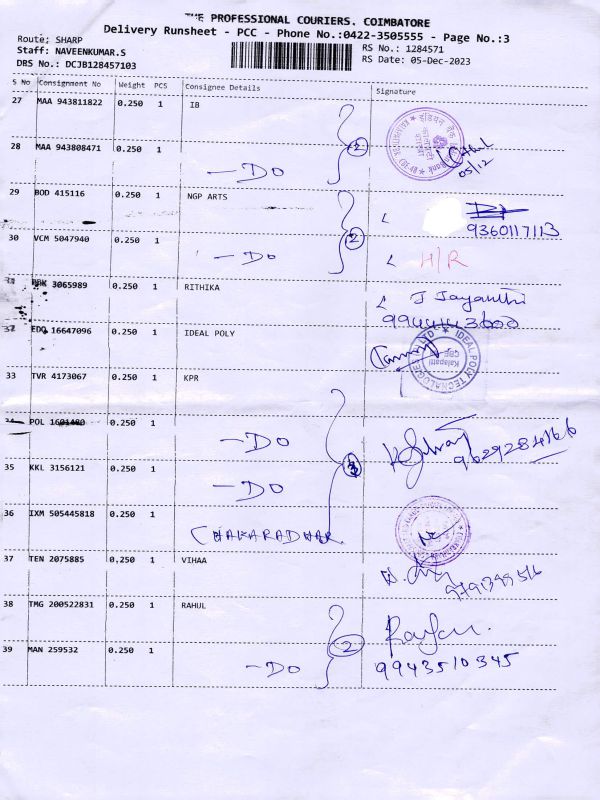 THE PROFESSIONAL COURIERS. COIMBATORE
Delivery Runsheet - PCC - Phone No.:0422-3505555 - Page No.:3
Route; SHARP
RS No.: 1284571
Staff: NAVEENKUMAR.S
RS Date: 05-Dec-2023
DRS No.: DCJB128457103
S No Consignment No Weight PCS Consignee Details Signature
27 MAA 943811822 0.250 1 IB
2
28 MAA 943808471 0.250 1
- DO
05/12
29 BOD 415116 0.250 1 NGP ARTS
9360117113
2
30 VCM 5047940 0.250 1
- DO
H/R
3065989 0.250 1 RITHIKA
J Jayanthi
EDQ 16647096 0.250 1 IDEAL POLY
IDEAL POLY TECNALOGIES
Kalapatti
CBE
33 TVR 4173067 0.250 1 KPR
POL 0.250 1
- DO
9629284166
35 KKL 3156121 0.250 1
- DO
3
36 IXM 505445818 0.250 1
CHAKARADHAR
37 TEN 2075885 0.250 1 VIHAA
38 TMG 200522831 0.250 1 RAHUL
2
39 MAN 259532 0.250 1
- DO
9943510345